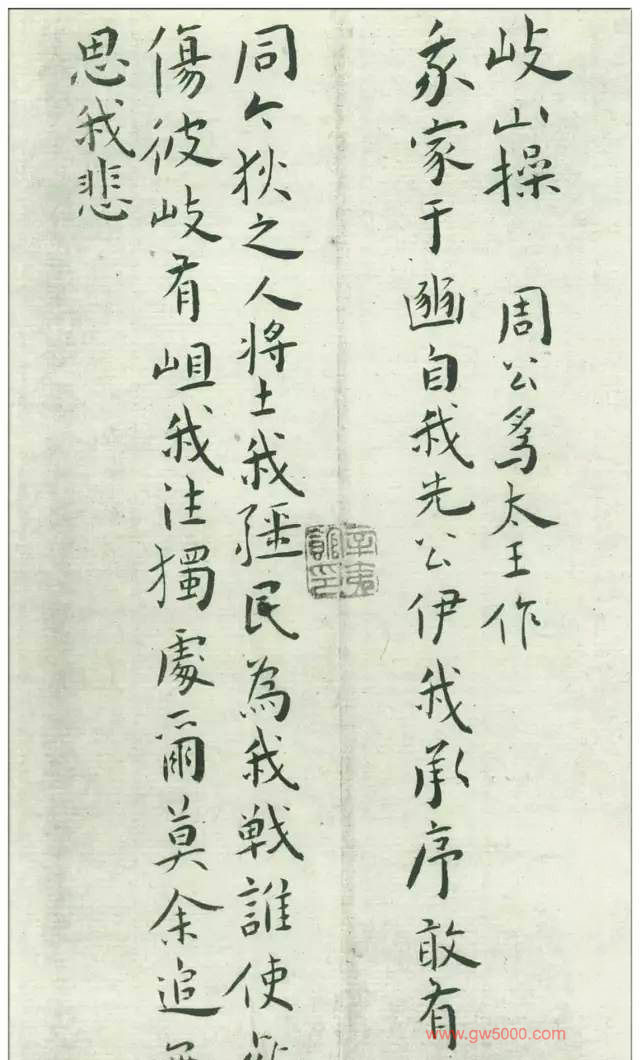 岐山操 周公為太王作
我家于豳自我先公伊我承序敢有
辛夷館印
同今狄之人將土我疆民為我戦誰使
傷彼岐有岨我往獨處爾莫余追
思我悲
www.gw5000.com